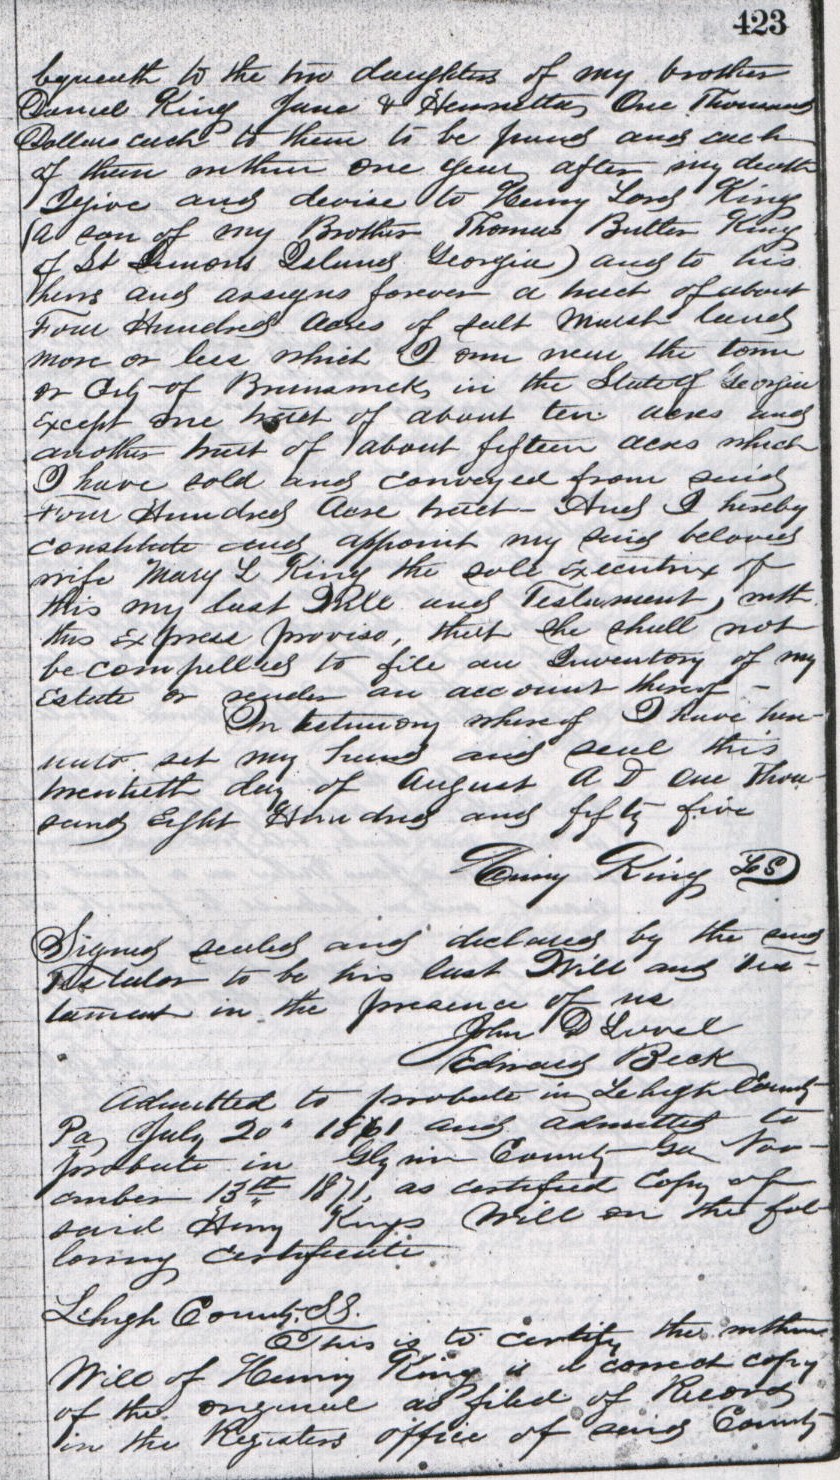 423
bequeath to the two daughters of my brother
Daniel King Jane & Henrietta, One Thousand
Dollars each to them to be paid and each
of them within one year, after my death
I give and devise to Henry Lord King
(a son of my Brother Thomas Butler King
of St Simons Island Georgia) and to his
heirs and assigns forever a tract of about
Four Hundred Acres of salt Marsh land
more or less which I own near the town
or City of Brunswick, in the State of Georgia
Except one tract of about ten acres and
another tract of about fifteen acres which
I have sold and conveyed from said
Four Hundred Acre tract - And I hereby
constitute and appoint my said beloved
wife Mary L King the sole Executrix of
this my last Will and Testament, with
this express proviso, that she shall not
be compelled to file an Inventory of my
Estate or render an account thereof -
In testimony whereof I have here-
unto set my hand and seal this
twentieth day of August A D One Thou-
sand Eight Hundred and fifty five
Henry King LS
Signed sealed and declared by the said
Testator to be his last Will and Tes-
tament in the presence of us
John D
Edward Beck
Admitted to probate in Lehigh County
Pa, July 20" 1861 and admitted to
probate in Glynn County Ga Nov-
ember 13th 1871, as certified Copy of
said Henry Kings Will on the fol-
lowing certificate
Lehigh County, SS.
This is to certify the within
Will of Henry King is a correct copy
of the original as filed of Record
in the Registers office of said County